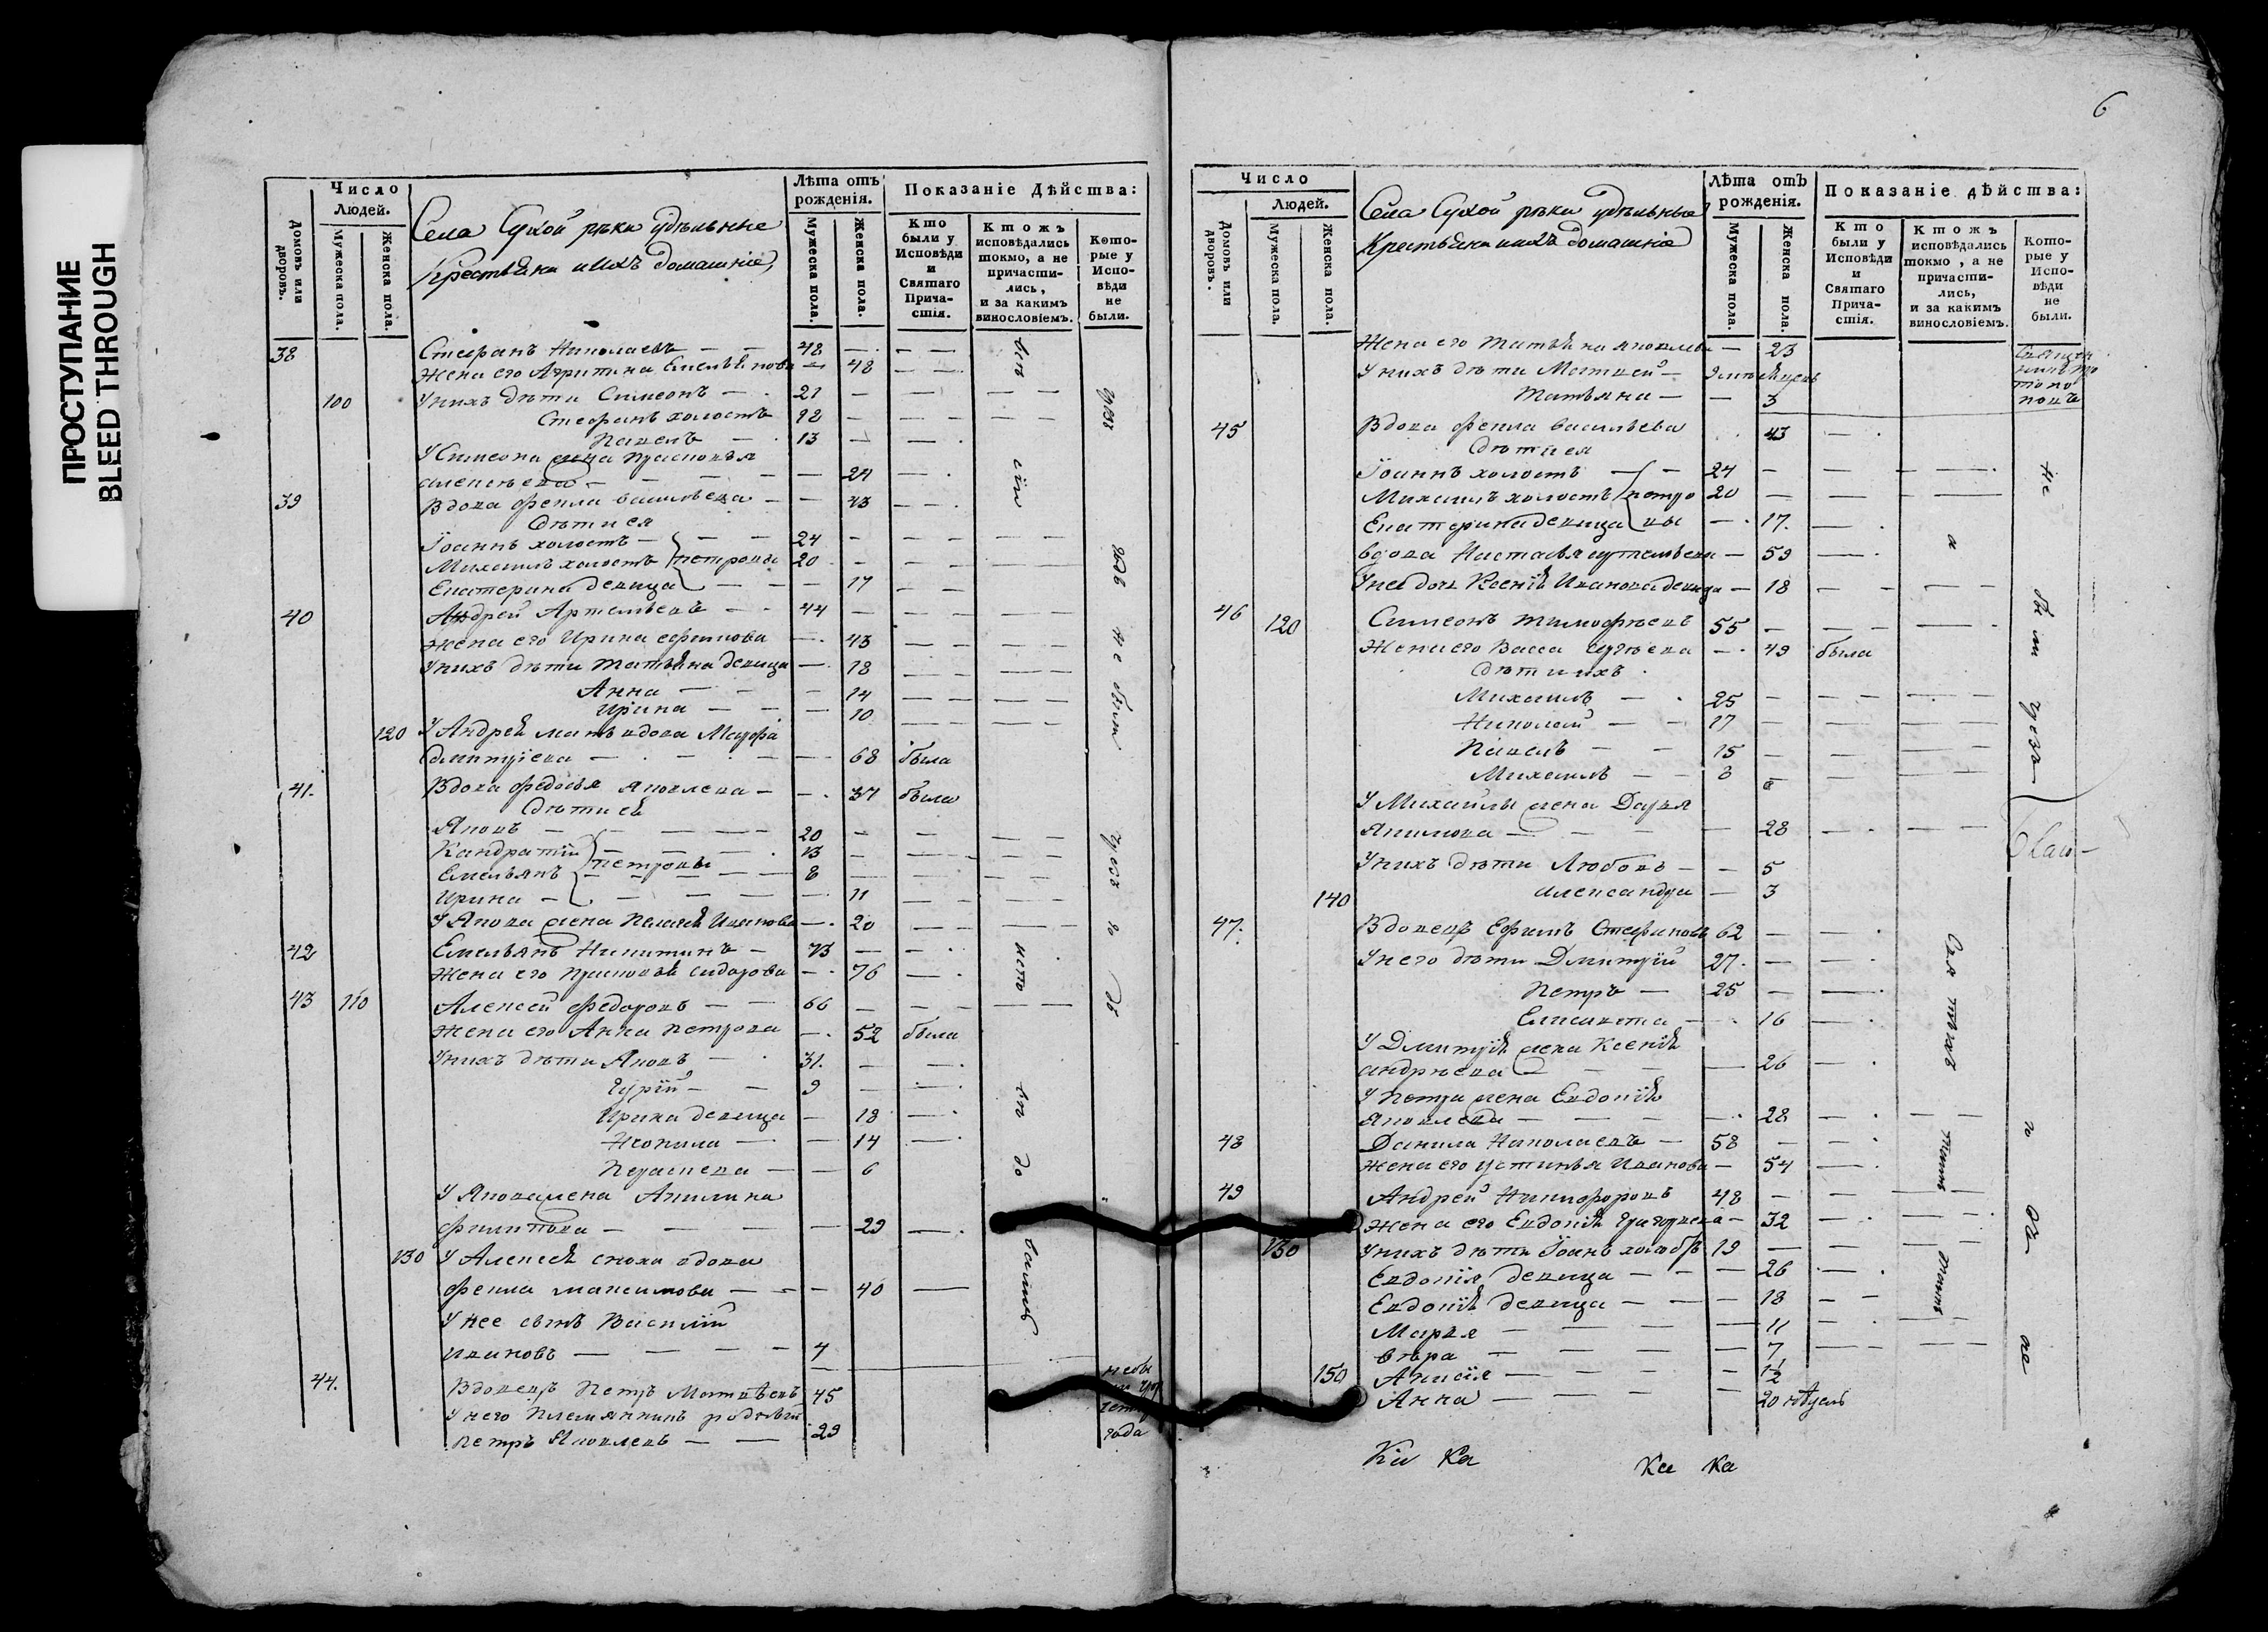 ПРОСТУПАНИЕ
BLEED THROUGH
Число
Людей.
Домовъ или дворовъ.
Мужеска пола.
Женска пола.
Села Сухой рѣки удѣльные
Крестьяна и ихъ домашніе
Лѣта отъ рожденія.
Мужеска пола.
Женска пола.
Показаніе Дѣйства:
Кто были у Исповѣди и Святаго Причастія.
Ктожъ исповѣдались токмо, а не причастились, и за какимъ винословіемъ.
Которые у Исповѣди не были.
38 Стефанъ Николаевъ — — 48
Жена его Агрипина Емельянова — 48
100 У нихъ дѣти Симеонъ — 21
Стефанъ холостъ
Павелъ — 13
У Симеона жена Прасковья
алексѣева — — 24
39 Вдова Фекла Васильева — — 43
Дѣти ея
Іоаннъ холостъ — 24
Михаилъ холостъ петровы 20
Екатерина девица — — 17
40 Андрей Артемьевъ — 44
Жена его Ирина ефимова — 43
У нихъ дѣти Татьяна девица — 18
Анна — 14
Ирина — — 10
120 У Андрея мать вдова Марфа
дмитріева — — 68 была
41. Вдова Федосья яковлева — — 37 была
Дѣти ея
Яковъ — 20
Кандратій петровы 13
Емельянъ 8
Ирина — 11
У Якова жена Пелагея Иванова — 20
42 Емельянъ Никитинъ — 73
Жена его Прасковья сидорова — 76
43 110 Алексей Федоровъ — — 66
Жена его Анна петрова — 52 была
У нихъ дѣти Яковъ — 31.
Гурій — — 9
Ирина девица — 18
Неонила — — 14
Параскева — — 6
У Якова жена Акилина
филипова — — 29
130 У Алексея сноха вдова
Фекла максимова — — 40
У нее сынъ Василій
ивановъ — — 4
44. Вдовецъ Петръ Матвѣевъ 45
У него племянникъ родный
петръ Яковлевъ — — 29
года
6
Число
Людей.
Домовъ или дворовъ.
Мужеска пола.
Женска пола.
Села Сухой рѣки удѣльные
Крестьяна и ихъ домашніе
Лѣта отъ рожденія.
Мужеска пола.
Женска пола.
Показаніе дѣйства:
Кто были у Исповѣди и Святаго Причастія.
Ктожъ исповѣдались токмо, а не причастились, и за какимъ винословіемъ.
Которые у Исповѣди не были.
Жена его Татьяна яковлева — 23
У нихъ дѣти Матвей —
Татьяна — — 3
45 Вдова Фекла васильева 43
Дѣти ея
Іоаннъ холостъ — 24
Михаилъ холостъ петро 20
Екатерина девица вы — 17.
вдова Настасья — 59
У нея дочь Ксенія Иванова девица — 18
46 120 Симеонъ тимофѣевъ 55
Жена его Васса Сергѣева — 49 была
Дѣти ихъ
Михаилъ — 25
Николай — — 17
Павелъ — — 15
Михаилъ — — 8
У Михаилы жена Дарья
Якимова — — 28
У нихъ дѣти Любовь — — 5
140 александра — 3
47. Вдовецъ Ефимъ Стефановъ 62
У него дѣти Дмитрій 27.
Петръ — 25
Елисавета — 16
У Дмитрія жена Ксенія
андреева — 26
У Петра жена Евдокія
яковлева — — 28
48 Данила Николаевъ — 58
Жена его устинья Иванова — 54
49 Андрей Никифоровъ 48
Жена его Евдокія григорьева — 32
130 У нихъ дѣти Іоанъ 19
Евдокія девица — — 26
Евдокія девица — — 18
Марья — — 11
вѣра — — 7
150 Анисія — — 1½
Анна — — 20 недель
Ка Ка Ка Ка